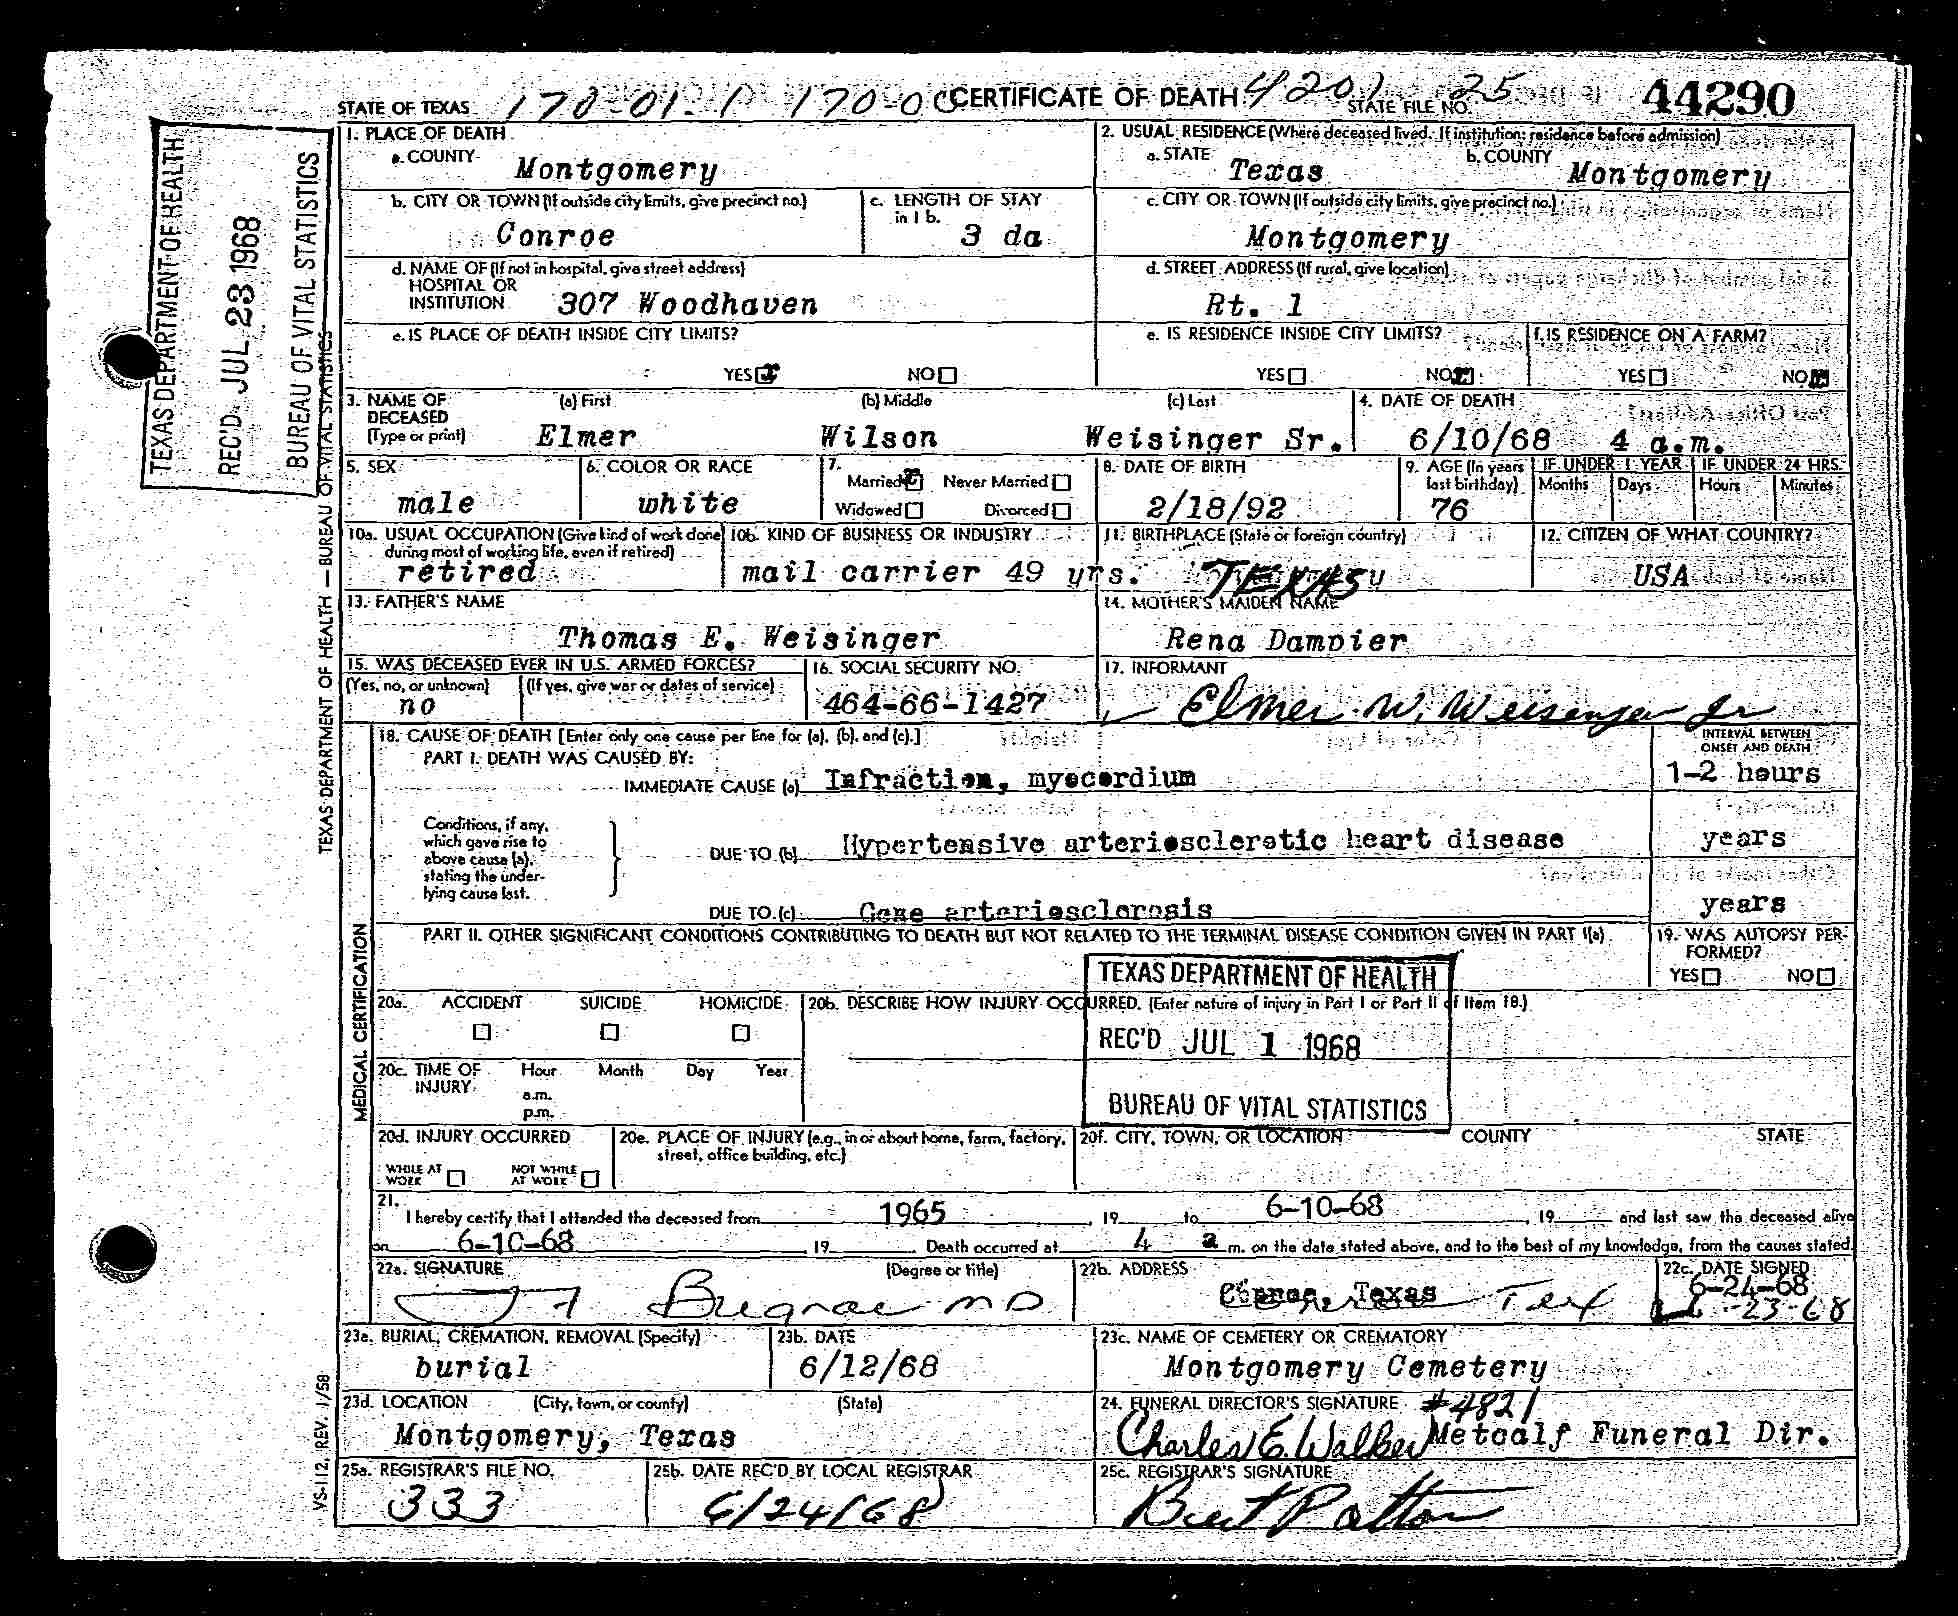 STATE OF TEXAS 170-01.1 170-0 CERTIFICATE OF DEATH 4201 STATE FILE NO. 25 44290
TEXAS DEPARTMENT OF HEALTH
REC'D JUL 23 1968
BUREAU OF VITAL STATISTICS
TEXAS DEPARTMENT OF HEALTH — BUREAU OF VITAL STATISTICS
1. PLACE OF DEATH
a. COUNTY Montgomery
2. USUAL RESIDENCE (Where deceased lived. If institution: residence before admission)
a. STATE Texas b. COUNTY Montgomery
b. CITY OR TOWN (If outside city limits, give precinct no.) Conroe
c. LENGTH OF STAY in 1 b. 3 da
c. CITY OR TOWN (If outside city limits, give precinct no.)
Montgomery
d. NAME OF (If not in hospital, give street address)
HOSPITAL OR
INSTITUTION 307 Woodhaven
d. STREET ADDRESS (If rural, give location)
Rt. 1
e. IS PLACE OF DEATH INSIDE CITY LIMITS?
YES x NO
e. IS RESIDENCE INSIDE CITY LIMITS?
YES NO x
f. IS RESIDENCE ON A FARM?
YES NO x
3. NAME OF DECEASED (Type or print)
(a) First (b) Middle (c) Last
Elmer Wilson Weisinger Sr.
4. DATE OF DEATH
6/10/68 4 a.m.
5. SEX
male
6. COLOR OR RACE
white
7.
Married x Never Married
Widowed Divorced
8. DATE OF BIRTH
2/18/92
9. AGE (In years last birthday)
76
IF UNDER 1 YEAR IF UNDER 24 HRS.
Months Days Hours Minutes
10a. USUAL OCCUPATION (Give kind of work done during most of working life, even if retired)
retired
10b. KIND OF BUSINESS OR INDUSTRY
mail carrier 49 yrs.
11. BIRTHPLACE (State or foreign country)
TEXAS
12. CITIZEN OF WHAT COUNTRY?
USA
13. FATHER'S NAME
Thomas E. Weisinger
14. MOTHER'S MAIDEN NAME
Rena Dampier
15. WAS DECEASED EVER IN U.S. ARMED FORCES?
(Yes, no, or unknown) (If yes, give war or dates of service)
no
16. SOCIAL SECURITY NO.
464-66-1427
17. INFORMANT
Elmer W. Weisinger Jr
MEDICAL CERTIFICATION
18. CAUSE OF DEATH [Enter only one cause per line for (a), (b), and (c).]
INTERVAL BETWEEN ONSET AND DEATH
PART I. DEATH WAS CAUSED BY:
IMMEDIATE CAUSE (a) Infraction, myocordium 1-2 hours
Conditions, if any, which gave rise to above cause (a), stating the underlying cause last.
DUE TO (b) Hypertensive arteriosclerotic heart disease years
DUE TO (c) Gene arteriosclerosis years
PART II. OTHER SIGNIFICANT CONDITIONS CONTRIBUTING TO DEATH BUT NOT RELATED TO THE TERMINAL DISEASE CONDITION GIVEN IN PART I(a)
19. WAS AUTOPSY PERFORMED?
YES NO
TEXAS DEPARTMENT OF HEALTH
REC'D JUL 1 1968
BUREAU OF VITAL STATISTICS
20a. ACCIDENT SUICIDE HOMICIDE
20b. DESCRIBE HOW INJURY OCCURRED. (Enter nature of injury in Part I or Part II of Item 18.)
20c. TIME OF INJURY Hour Month Day Year
a.m.
p.m.
20d. INJURY OCCURRED
WHILE AT WORK NOT WHILE AT WORK
20e. PLACE OF INJURY (e.g., in or about home, farm, factory, street, office building, etc.)
20f. CITY, TOWN, OR LOCATION COUNTY STATE
21.
I hereby certify that I attended the deceased from 1965, 19 to 6-10-68, 19 and last saw the deceased alive
on 6-10-68, 19 Death occurred at 4 a m. on the date stated above, and to the best of my knowledge, from the causes stated.
22a. SIGNATURE (Degree or title)
MD
22b. ADDRESS
Conroe, Texas Tex
22c. DATE SIGNED
6-24-68
6-23-68
23a. BURIAL, CREMATION, REMOVAL (Specify)
burial
23b. DATE
6/12/68
23c. NAME OF CEMETERY OR CREMATORY
Montgomery Cemetery
23d. LOCATION (City, town, or county) (State)
Montgomery, Texas
24. FUNERAL DIRECTOR'S SIGNATURE #4821
Charles E. Walker Metcalf Funeral Dir.
25a. REGISTRAR'S FILE NO.
333
25b. DATE REC'D BY LOCAL REGISTRAR
6/24/68
25c. REGISTRAR'S SIGNATURE
Burt Patton
VS-112, REV. 1/58